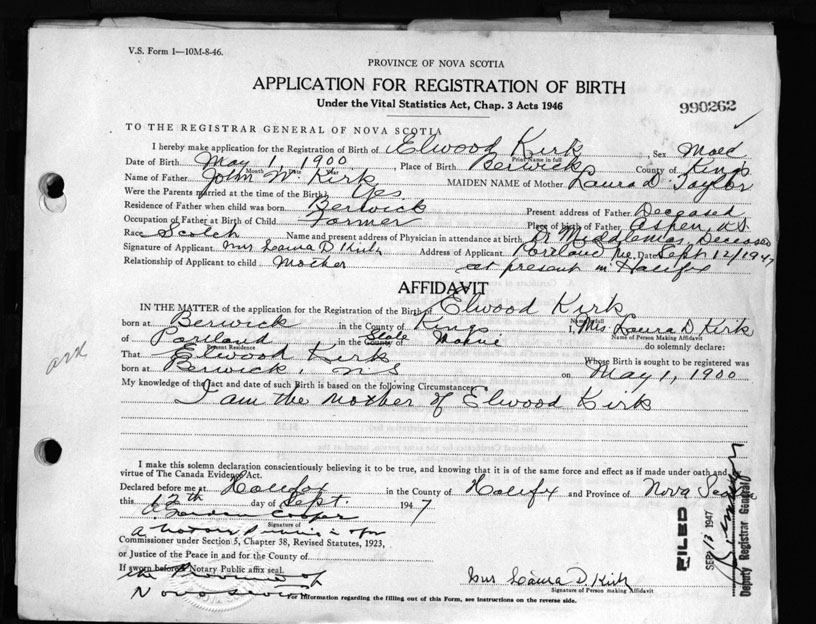 V.S. Form 1—10M-8-46.
PROVINCE OF NOVA SCOTIA
APPLICATION FOR REGISTRATION OF BIRTH
Under the Vital Statistics Act, Chap. 3 Acts 1946
990262
TO THE REGISTRAR GENERAL OF NOVA SCOTIA
I hereby make application for the Registration of Birth of Elwood Kirk Sex Male
Print Name in full
Date of Birth May 1, 1900 Place of Birth Berwick County of Kings
Month Date Year
Name of Father John W. Kirk MAIDEN NAME of Mother Laura D. Taylor
Were the Parents married at the time of the Birth Yes
Residence of Father when child was born Berwick Present address of Father Deceased
Occupation of Father at Birth of Child Farmer Place of birth of Father Aspen, N.S.
Race Scotch Name and present address of Physician in attendance at birth Dr. Deceased
Signature of Applicant Mrs Laura D Kirk Address of Applicant Portland Me. Date Sept 12/1947
Relationship of Applicant to child Mother at present in Halifax
AFFIDAVIT
IN THE MATTER of the application for the Registration of the Birth of Elwood Kirk
Name in full
born at Berwick in the County of Kings I, Mrs. Laura D. Kirk
Name of Person Making Affidavit
of Portland in the County of State Maine do solemnly declare:
Present Residence
That Elwood Kirk Whose Birth is sought to be registered was
born at Berwick, N.S on May 1, 1900
My knowledge of the fact and date of such Birth is based on the following Circumstances
I am the Mother of Elwood Kirk
I make this solemn declaration conscientiously believing it to be true, and knowing that it is of the same force and effect as if made under oath and
virtue of The Canada Evidence Act.
Declared before me at Halifax in the County of Halifax and Province of Nova Scotia
this 12th day of Sept. 1947
Cooper
Signature of
a Notary Public in & for
Commissioner under Section 5, Chapter 38, Revised Statutes, 1923,
or Justice of the Peace in and for the County of
If sworn before a Notary Public affix seal.
the Province of
Nova Scotia
Mrs Laura D Kirk
Signature of Person making Affidavit
For information regarding the filling out of this Form, see instructions on the reverse side.
FILED
SEP 13 1947
Deputy Registrar General